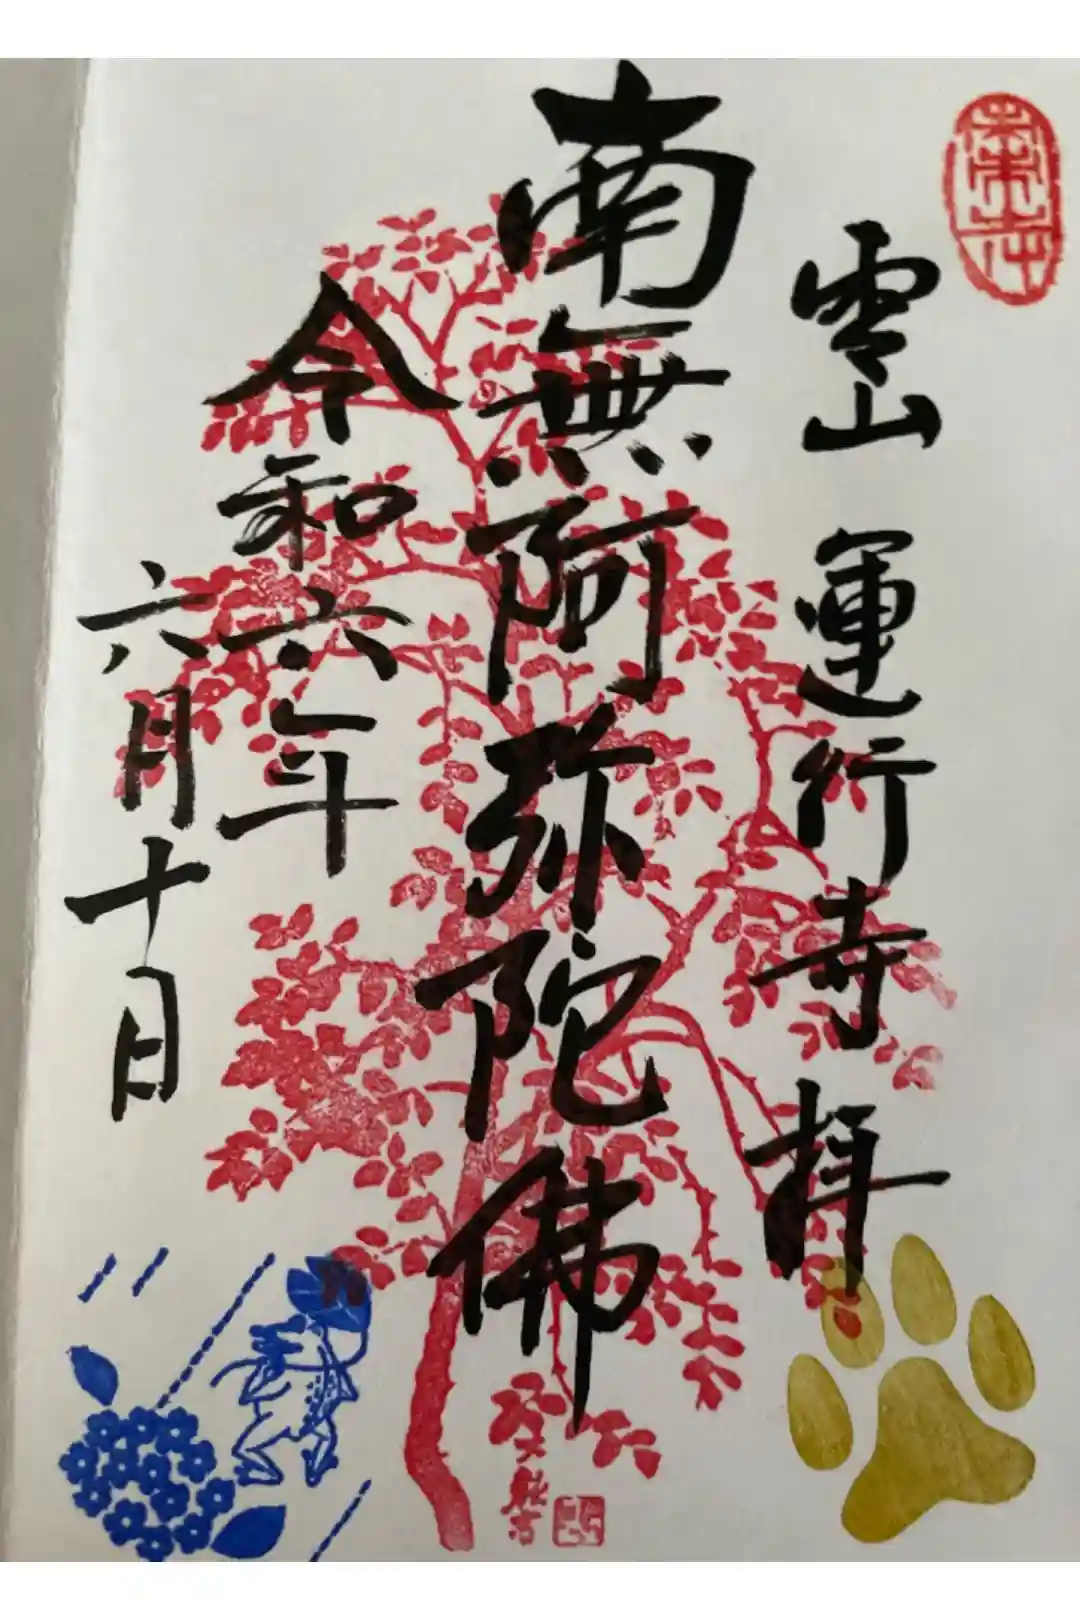 雲山 運行寺 拝
南無阿弥陀佛
令和六年
六月十日